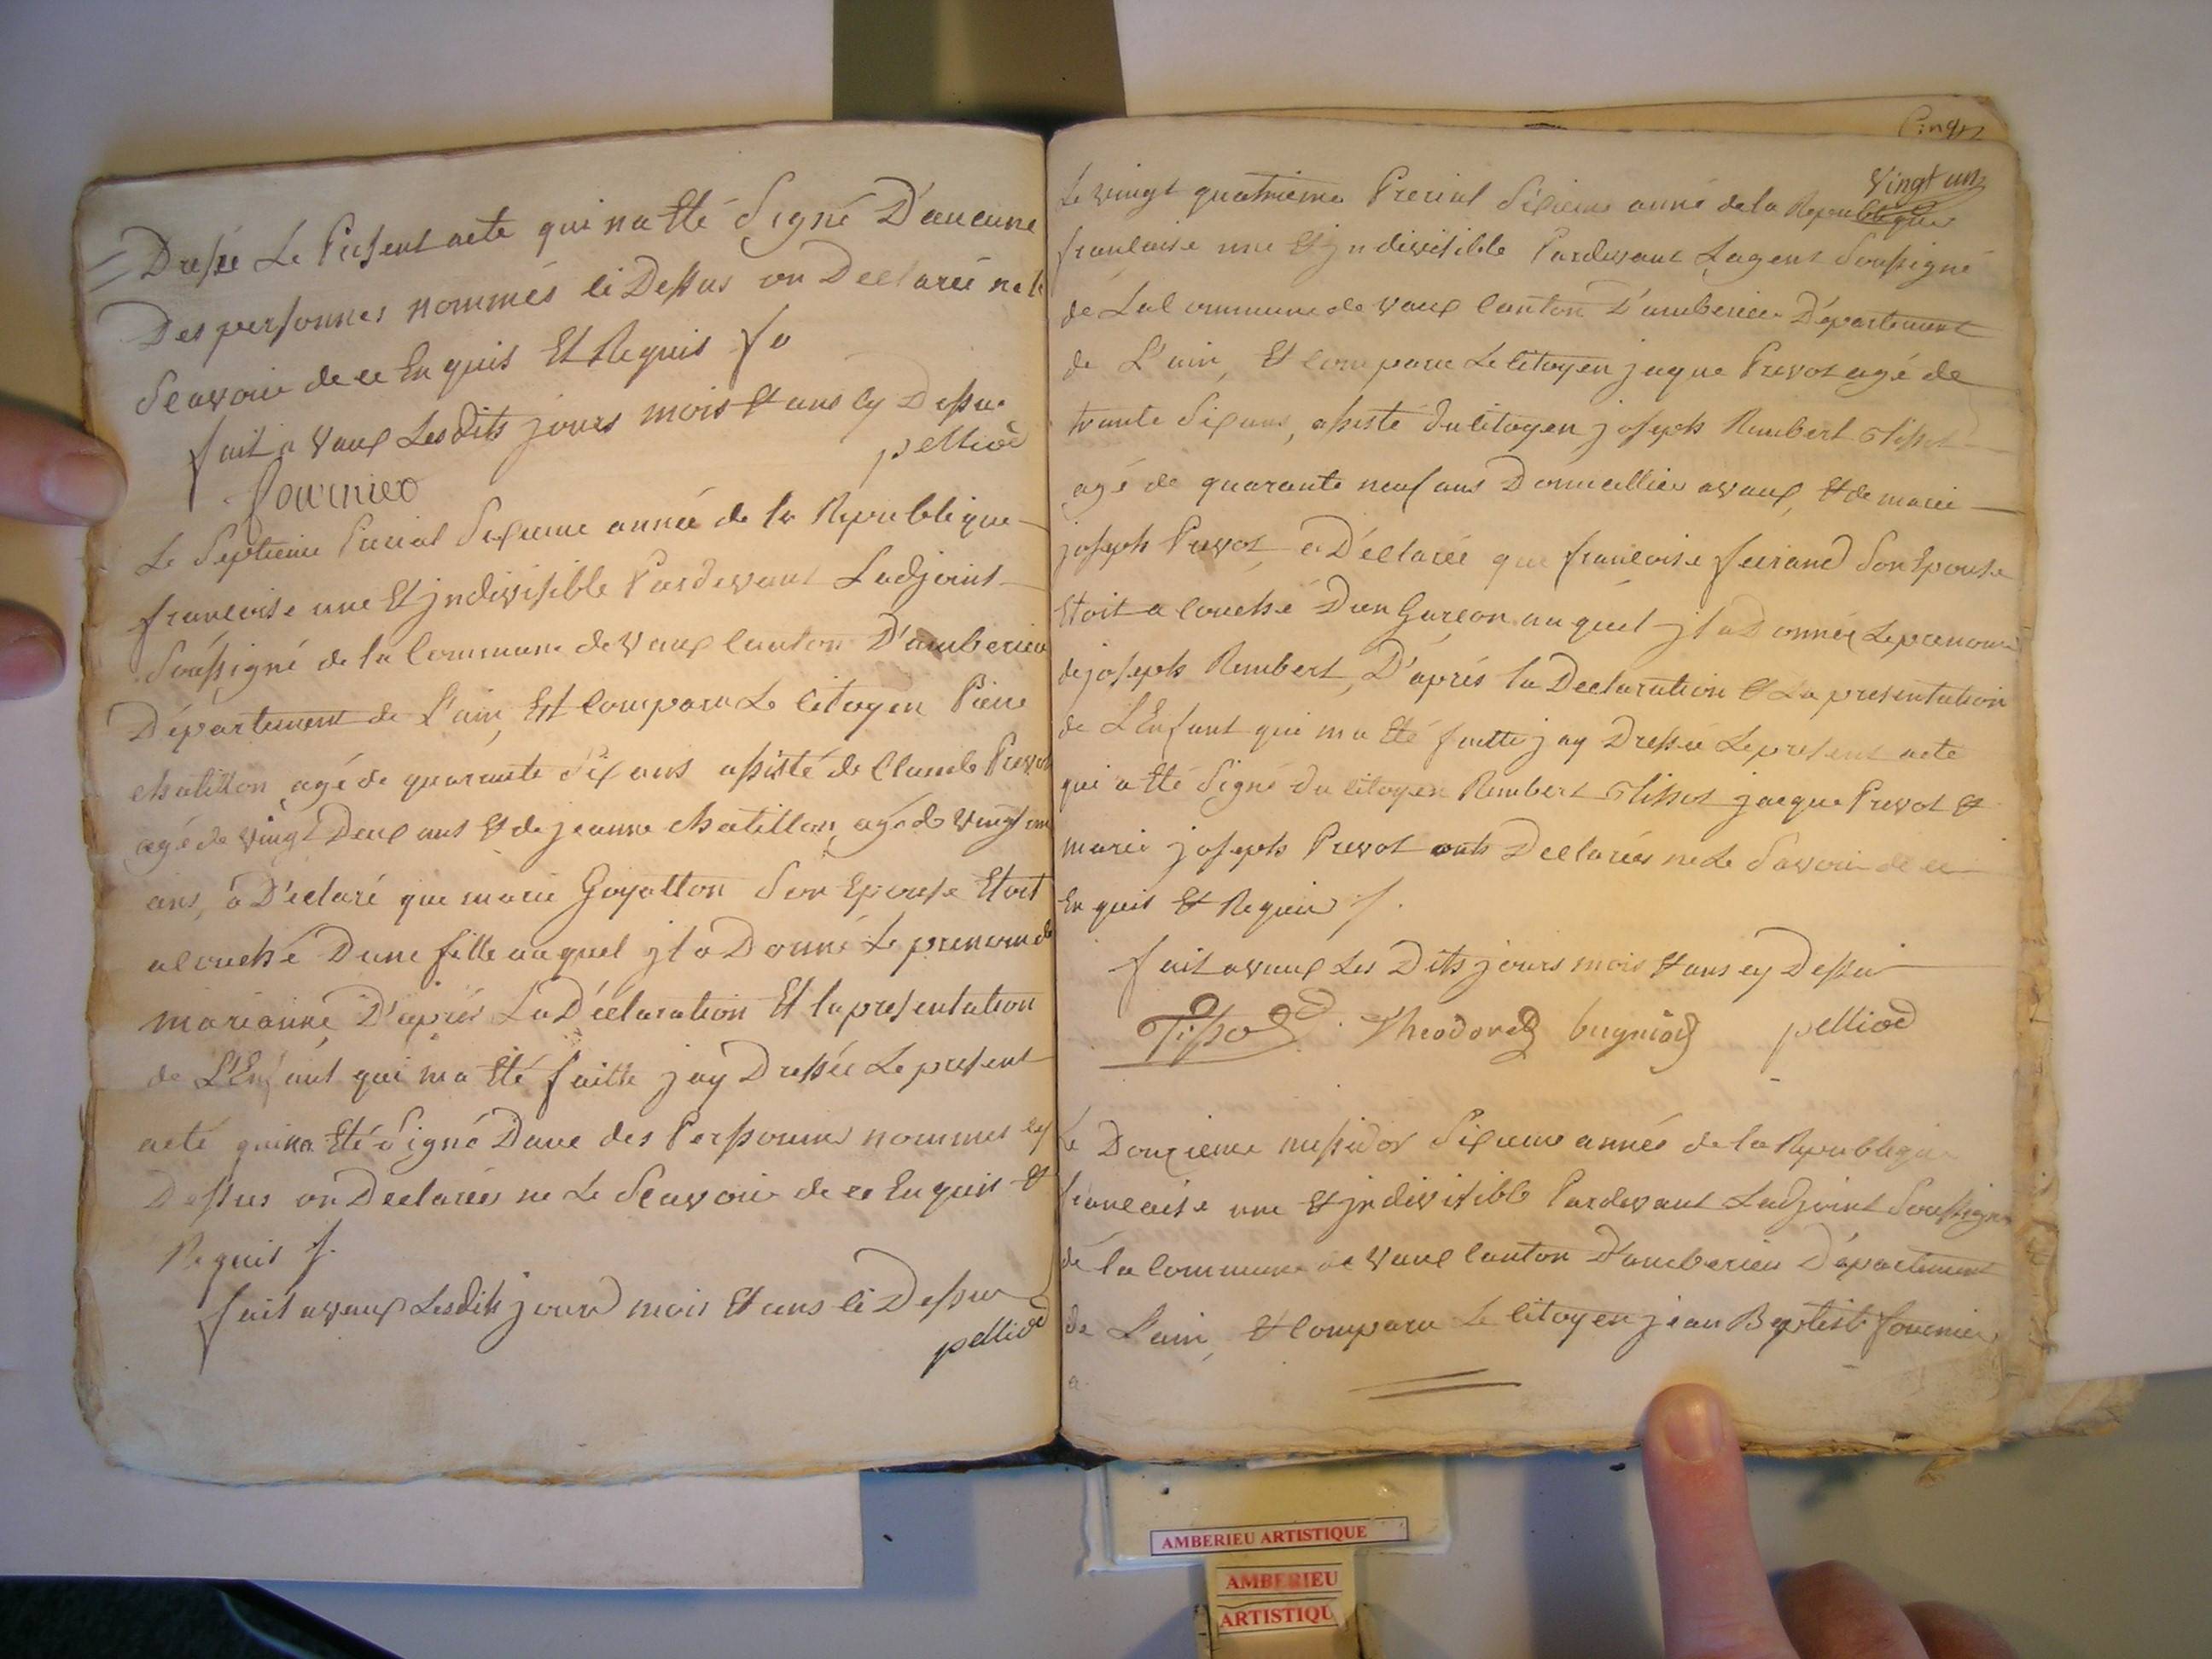 Dressé Le Present acte qui na Eté Signé D'aucune
Des personnes nommés ci Dessus on Declareé ne le
Scavoir de ce En quis Et Requis
fait a Vaux Lesdits jours mois Et ans cy Dessus
pelliod
fournier
Le Septieme Prerial Sixieme anneé de la Republique
francoise une Et jndivisible Pardevant Ladjoint
Soussigné de la Commune de Vaux Canton D'amberieu
Département de L'ain, Est Comparu Le citoyen Pierre
chatillon agé de quarante Six ans assisté de Claude Prevot
agé de vingt Deux ans Et de jeanne chatillon agé de vingt un
ans, a D'eclaré que marie Goyatton Son Epouse Etoit
acouché Dune fille auquel jl a Donné Le prenom de
marianne, D'aprés La Déclaration Et la presentation
de L'Enfant qui ma Eté faitte jay Dressée Le present
acté qui na Eté Signé Daue des Personnes nommes cy
Dessus on Declareés ne Le Scavoir de ce Enquis Et
Requis
fait a vaux Lesdits jours mois Et ans ci Dessus
pelliod
Cinq
Vingt un
Le vingt quatrieme Prerial Sixieme anné de la Republique
francaise une Et jndivisible Pardevant Lagent Soussigné
de La Commune de vaux Canton D'amberieu Département
de L'ain, Et Comparu Le Citoyen jaque Prevot agé de
trante Six ans, assisté du Citoyen joseph Rembert Tissot
agé de quarante neuf ans Domicillier a vaux, Et de marie
joseph Prevot a Déclareé que francoise ferrand Son Epouse
Etoit a Couché D'un Garcon auquel jl a Donnée Le prenom
de joseph Rembert, D'aprés la Declaration Et La presentation
de L'Enfant qui ma Eté faitte jay Dressée Le present acte
qui a Eté Signé du Citoyen Rembert Tissot jacque Prevot Et
marie joseph Prevot onts Declareés ne Le Savoir de ce
Enquis Et Requis
fait a vaux Les Dits jours mois Et ans cy Dessus
Tissot Theodore bugniod pelliod
Le Douzieme messidor Sixieme anneé de la Republique
francaise une Et jndivisible Pardevant Ladjoint Soussigné
de la Commune de vaux Canton D'amberieu Département
de L'ain, Et Comparu Le Citoyen jean Baptiste fournier
AMBERIEU ARTISTIQUE
AMBERIEU
ARTISTIQU